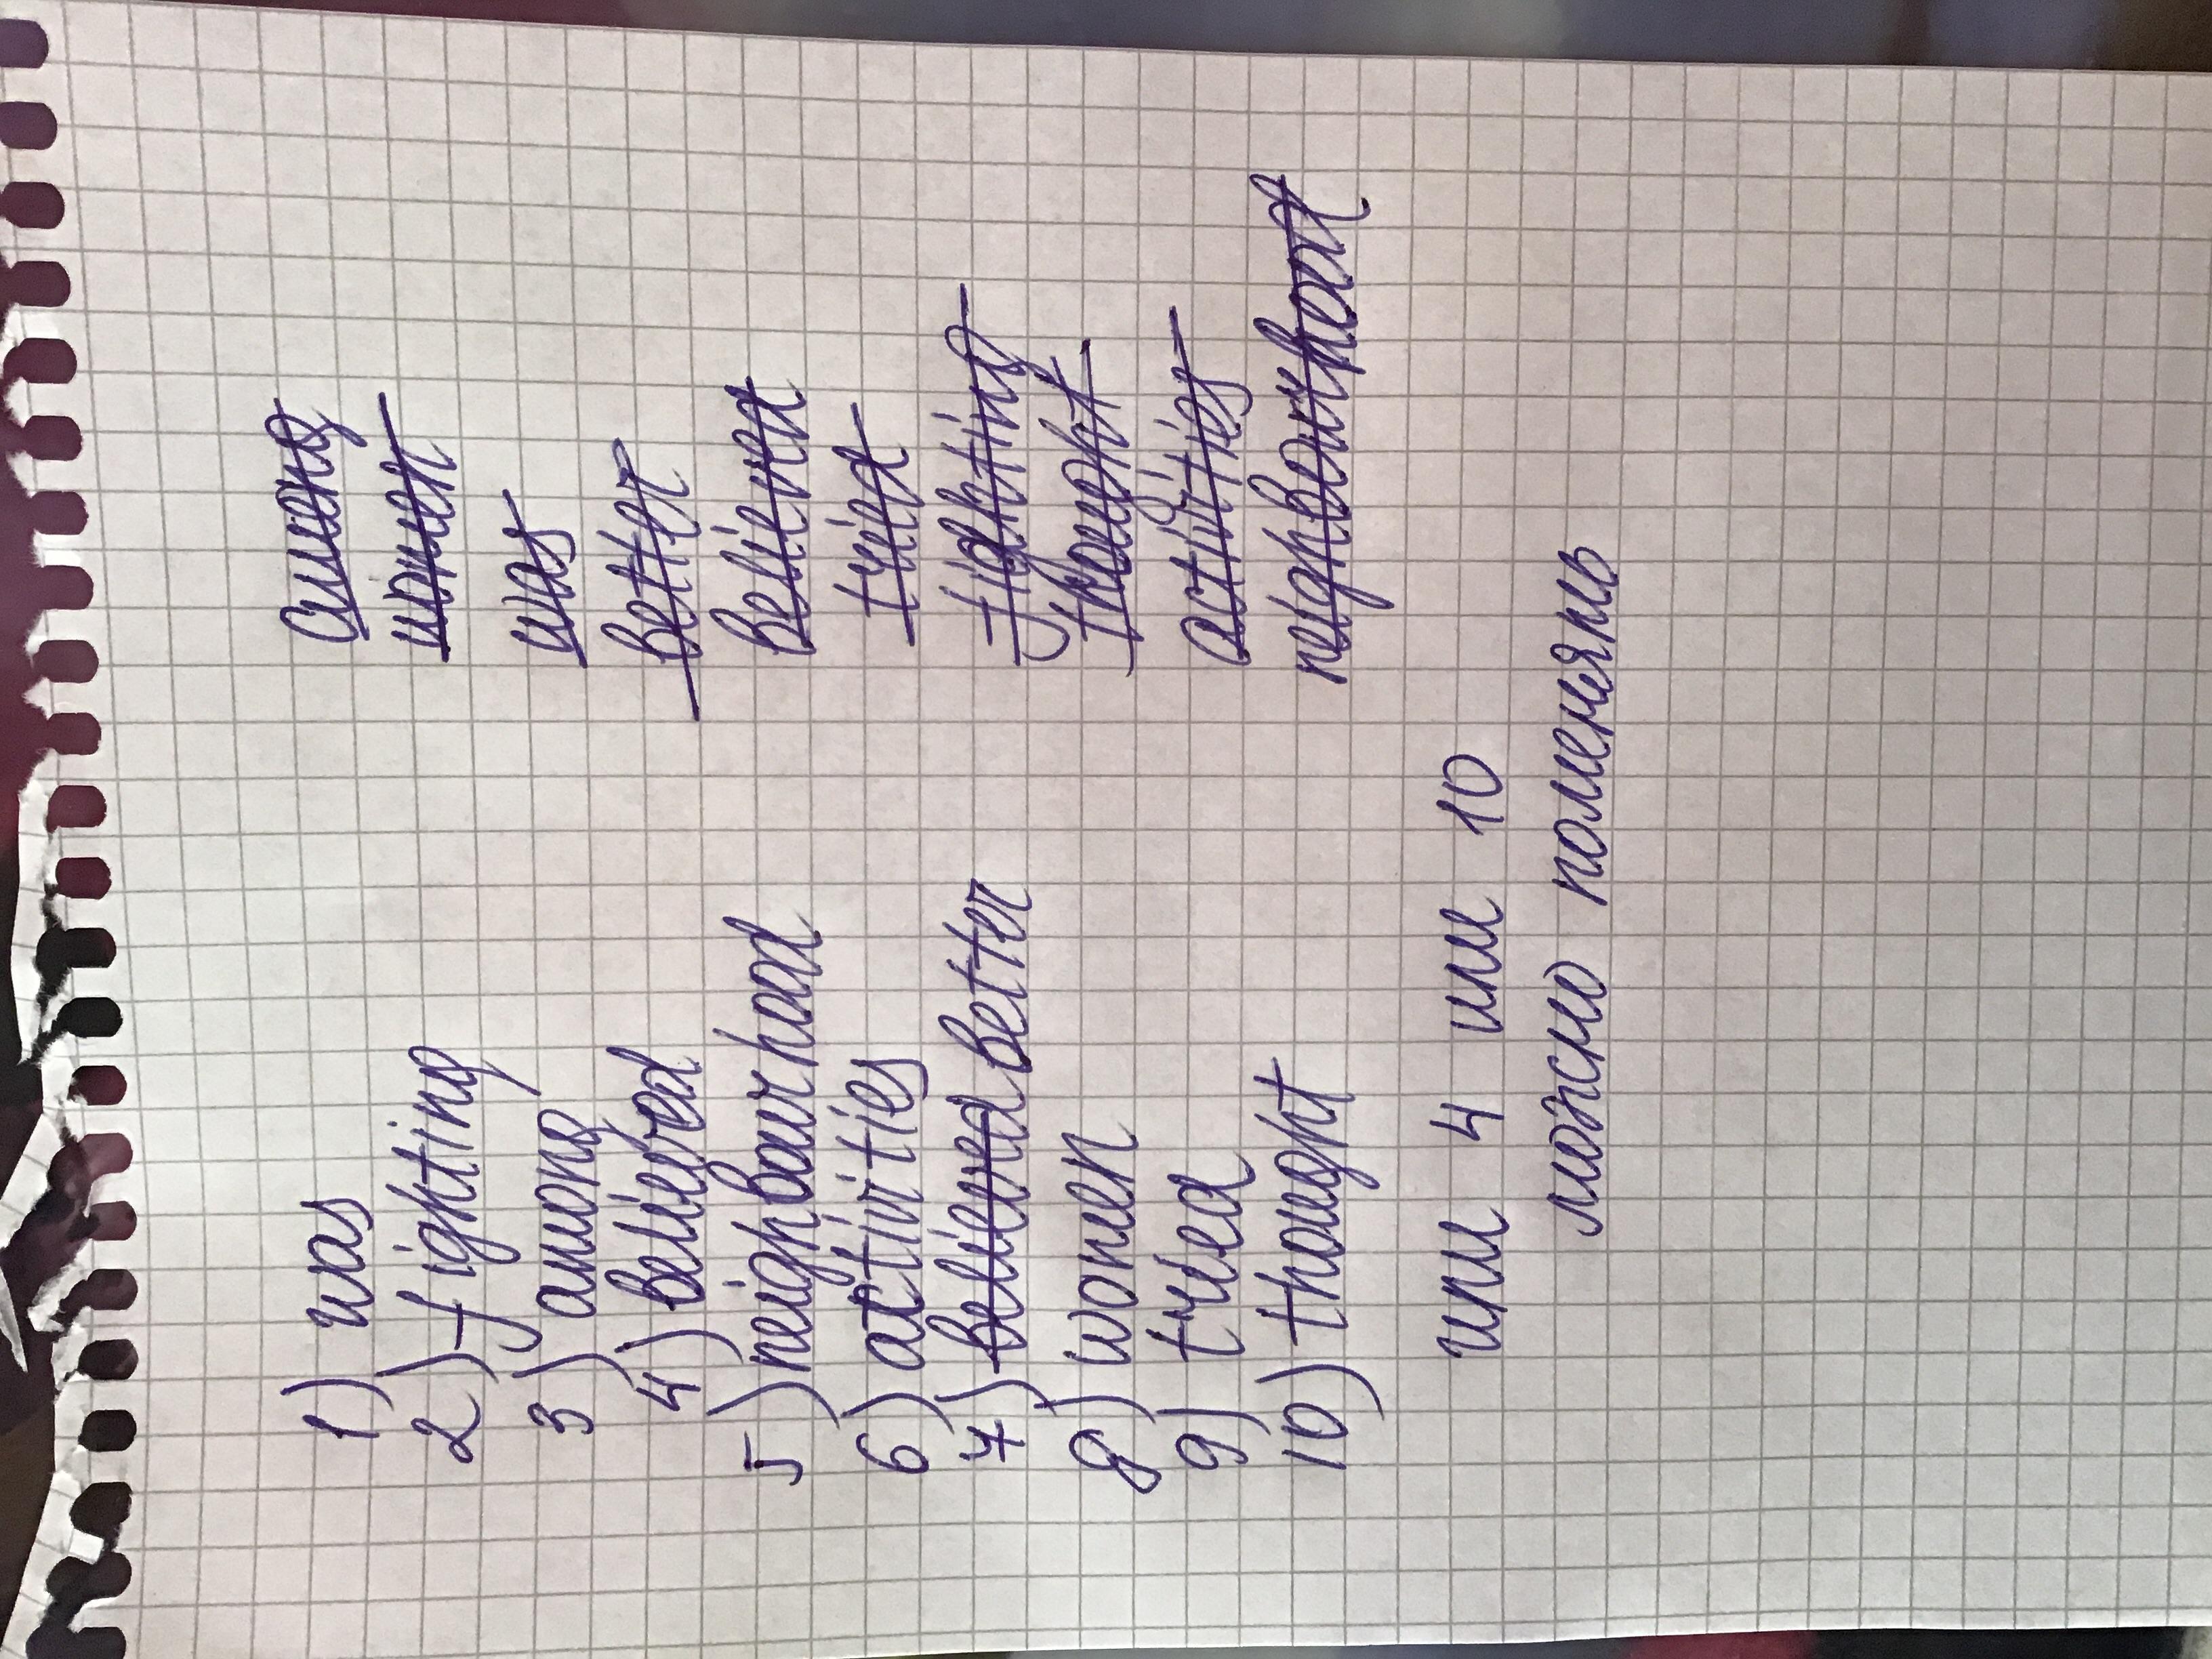 1) was
2) fighting
3) among
4) believed
5) neighbourhood
6) activities
7) believed better
8) women
9) tried
10) thought
или 4 или 10
можно поменять
among
women
was
better
believed
tried
fighting
thought
activities
neighbourhood